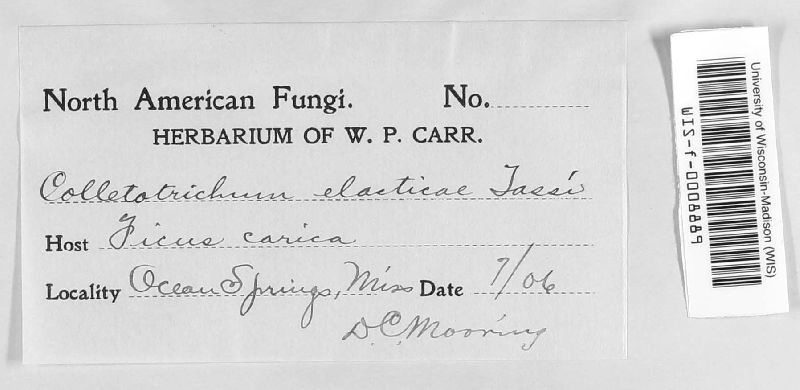 North American Fungi. No.
HERBARIUM OF W. P. CARR.
Colletotrichum elasticae Tassi
Host Ficus carica
Locality Ocean Springs, Miss Date 7/06
D.C. Mooring
University of Wisconsin-Madison (WIS)
WIS-f-0008889